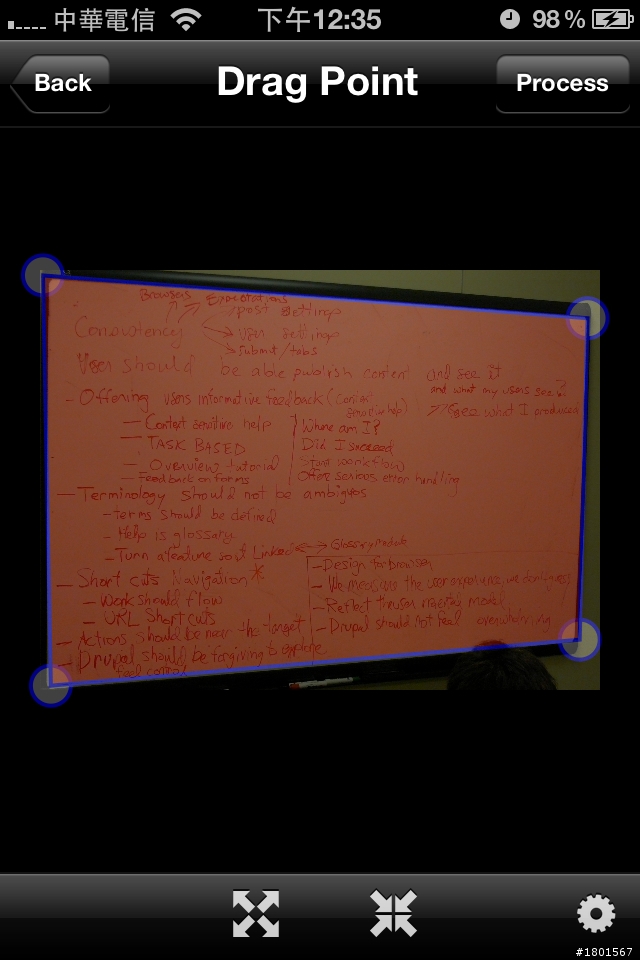 中華電信 下午12:35 98%
Back Drag Point Process
Browsers Expectations
Consistency post settings
User settings
submit/tabs
User should be able publish content and see it
and what my users see?
see what I produced
- Offering users informative feedback (Context
sensitive help)
- Context sensitive help
- TASK BASED
- Overview tutorial
- Feedback on forms
Where am I?
Did I succeed
Start workflow
Offers serious error handling
- Terminology should not be ambiguos
- Terms should be defined
- Help is glossary
- Turn a feature so it Linked Glossary Module
- Short cuts Navigation *
- Work should flow
- URL Shortcuts
- Actions should be near the target
- Drupal should be forgiving to explore
feel control
- Design for browser
- We measure the user experience, we don't guess
- Reflect the user mental model
- Drupal should not feel overwhelming
#1801567